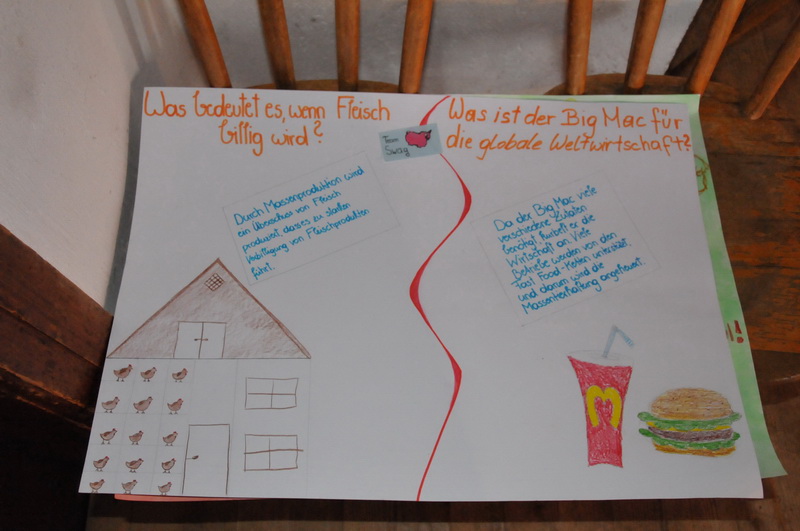 Was bedeutet es, wenn Fleisch
billig wird?
Team
Sway
Durch Massenproduktion wird
ein Überschuss von Fleisch
produziert, dass es zu starken
Verbilligung von Fleischprodukten
führt.
Was ist der Big Mac für
die globale Weltwirtschaft?
Da der Big Mac viele
verschiedene Zutaten
benötigt, kurbelt er die
Wirtschaft an. Viele
Betriebe werden von den
Fast Food-Ketten unterstützt
und darum wird die
Massentierhaltung angefeuert.
M
!